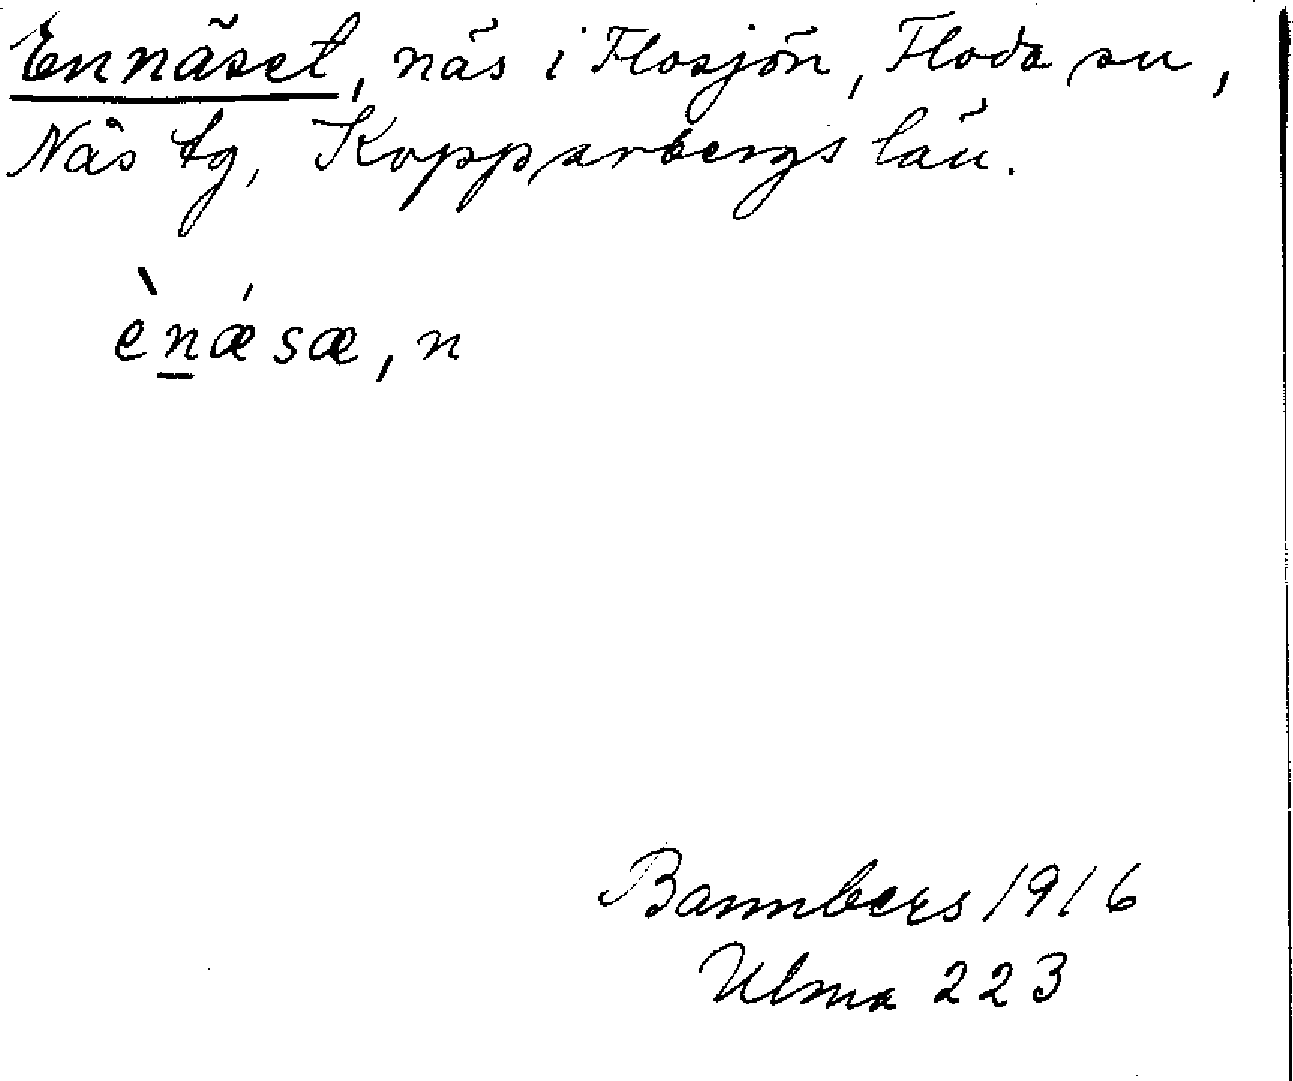 Ennäset, näs i Flosjön, Floda sn,
Nås tg, Kopparbergs län.
èn̲ǽsæ, n
Bannbers 1916
Ulma 223